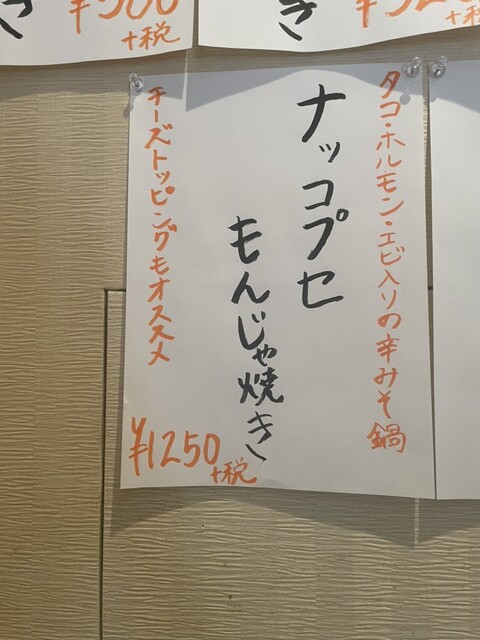 き
¥500
+税
き
+税
タコ・ホルモン・エビ入りの辛みそ鍋
ナッコプセ
もんじゃ焼き
チーズトッピングもオススメ
¥1250
+税